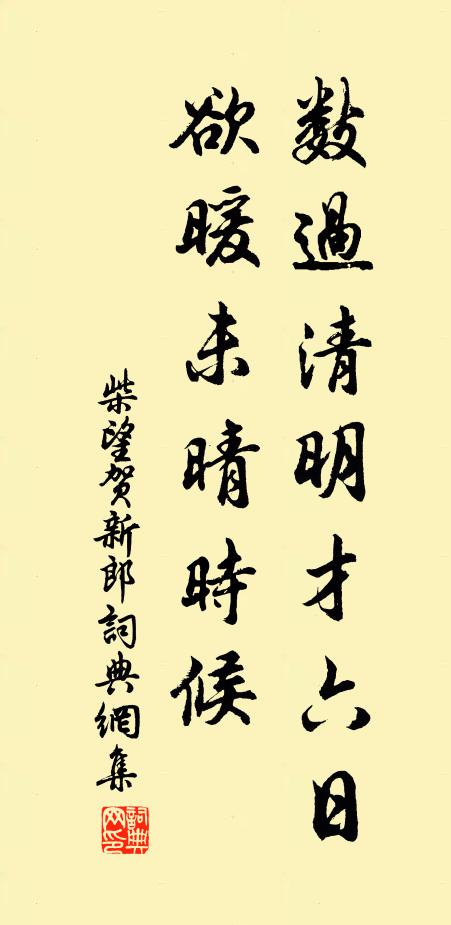 數過清明才六日
欲暖未晴時候
柴望賀新郎詞典網集
詞典网印